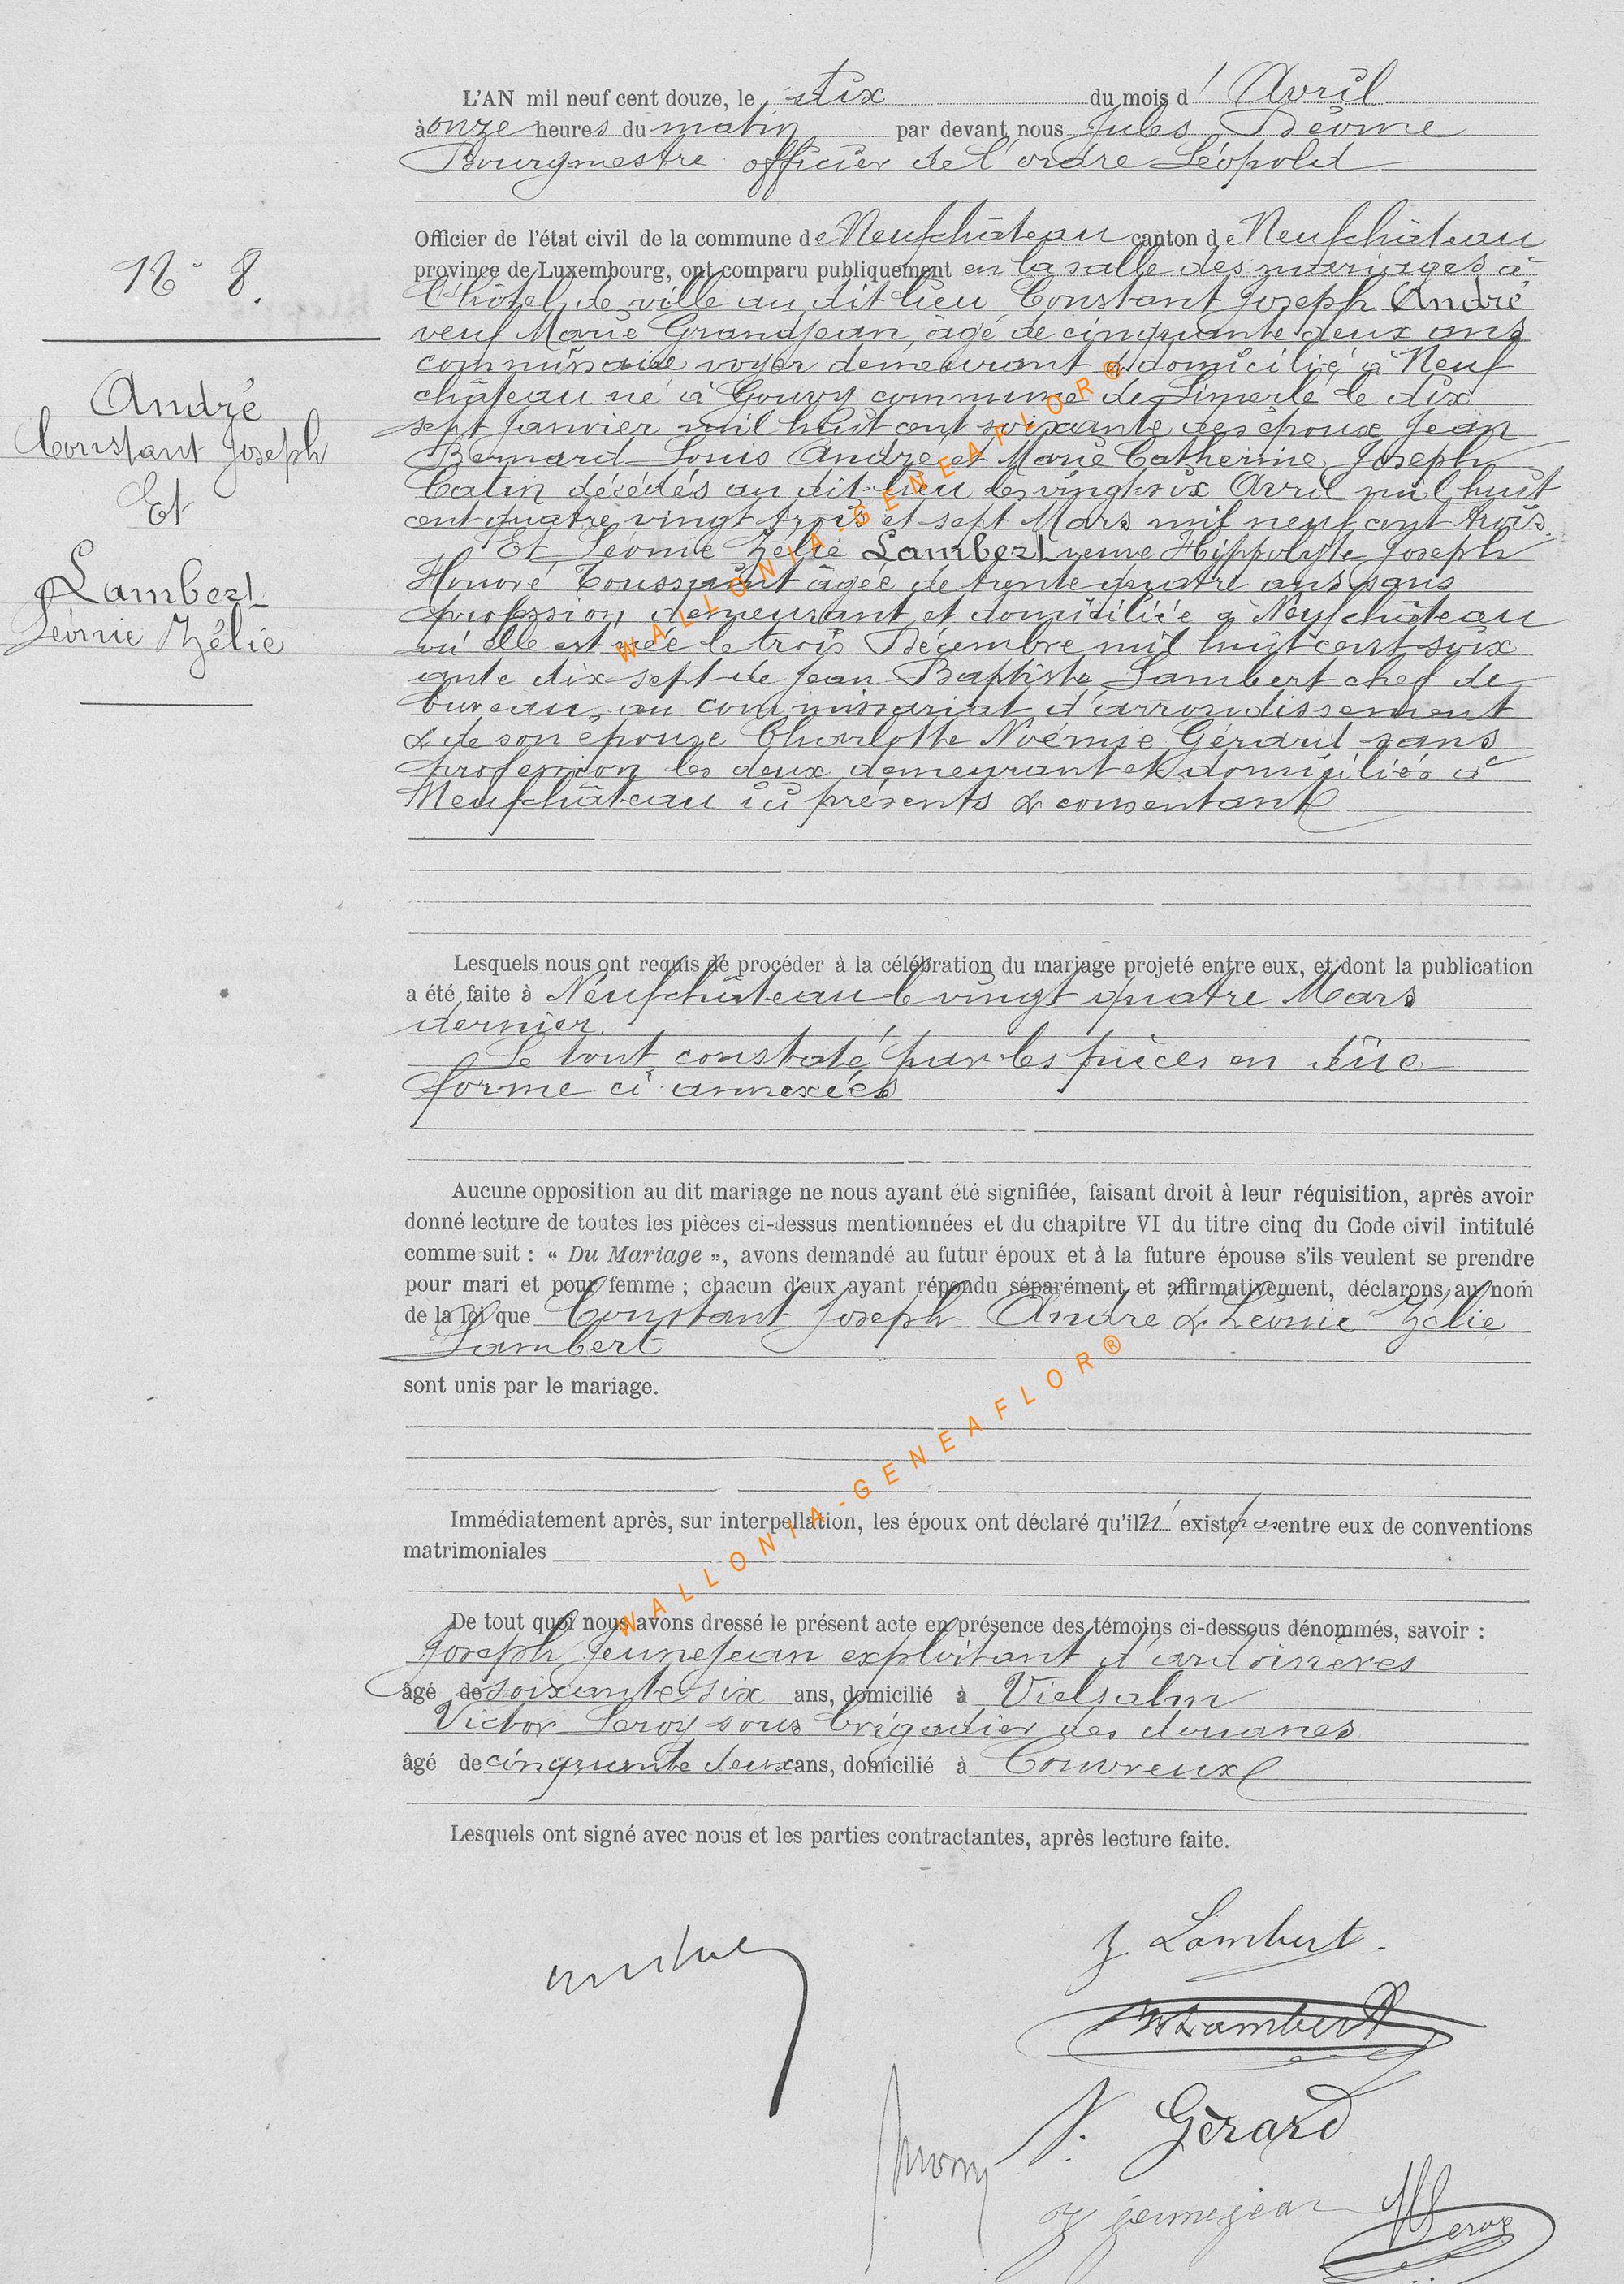 L'AN mil neuf cent douze, le dix du mois d'Avril
à onze heures du matin par devant nous Jules
Bourgmestre officier de l'ordre Léopold
Officier de l'état civil de la commune de Neufchâteau canton de Neufchâteau
province de Luxembourg, ont comparu publiquement en la salle des mariages à
l'hôtel de ville au dit lieu Constant Joseph André
veuf Marie Grandjean, âgé de cinquante deux ans
commissaire voyer demeurant & domicilié à Neuf
château né à Gouvy commune de Limerlé le dix
sept Janvier mil huit cent soixante des époux Jean
Bernard Louis André et Marie Catherine Joseph
Catin décédés au dit lieu les vingt six Avril mil huit
cent quatre vingt trois et sept Mars mil neuf cent trois.
Et Léonie Zélie Lambert veuve Hippolyte Joseph
Honoré Toussaint âgée de trente quatre ans sans
profession, demeurant et domiciliée à Neufchâteau
où elle est née le trois Décembre mil huit cent soix
ante dix sept de Jean Baptiste Lambert chef de
bureau au commissariat d'arrondissement
& de son épouse Charlotte Noémie Gérard sans
profession les deux demeurant et domiciliés à
Neufchâteau ici présents & consentant
N° 8.
André
Constant Joseph
Et
Lambert
Léonie Zélie
Lesquels nous ont requis de procéder à la célébration du mariage projeté entre eux, et dont la publication
a été faite à Neufchâteau le vingt quatre Mars
dernier.
Le tout constaté par les pièces en dûe
forme ci annexées
Aucune opposition au dit mariage ne nous ayant été signifiée, faisant droit à leur réquisition, après avoir
donné lecture de toutes les pièces ci-dessus mentionnées et du chapitre VI du titre cinq du Code civil intitulé
comme suit : « Du Mariage », avons demandé au futur époux et à la future épouse s'ils veulent se prendre
pour mari et pour femme ; chacun d'eux ayant répondu séparément et affirmativement, déclarons au nom
de la loi que Constant Joseph André & Léonie Zélie
Lambert
sont unis par le mariage.
Immédiatement après, sur interpellation, les époux ont déclaré qu'il n'existe pas entre eux de conventions
matrimoniales
De tout quoi nous avons dressé le présent acte en présence des témoins ci-dessous dénommés, savoir :
Joseph Jeunejean exploitant d'ardoisières
âgé de soixante six ans, domicilié à Vielsalm
Victor Leroy sous brigadier des douanes
âgé de cinquante deux ans, domicilié à Couvreux
Lesquels ont signé avec nous et les parties contractantes, après lecture faite.
Z Lambert.
Lambert
N. Gérard
J Jeunejean
Leroy
WALLONIA-GENEAFLOR®
WALLONIA-GENEAFLOR®